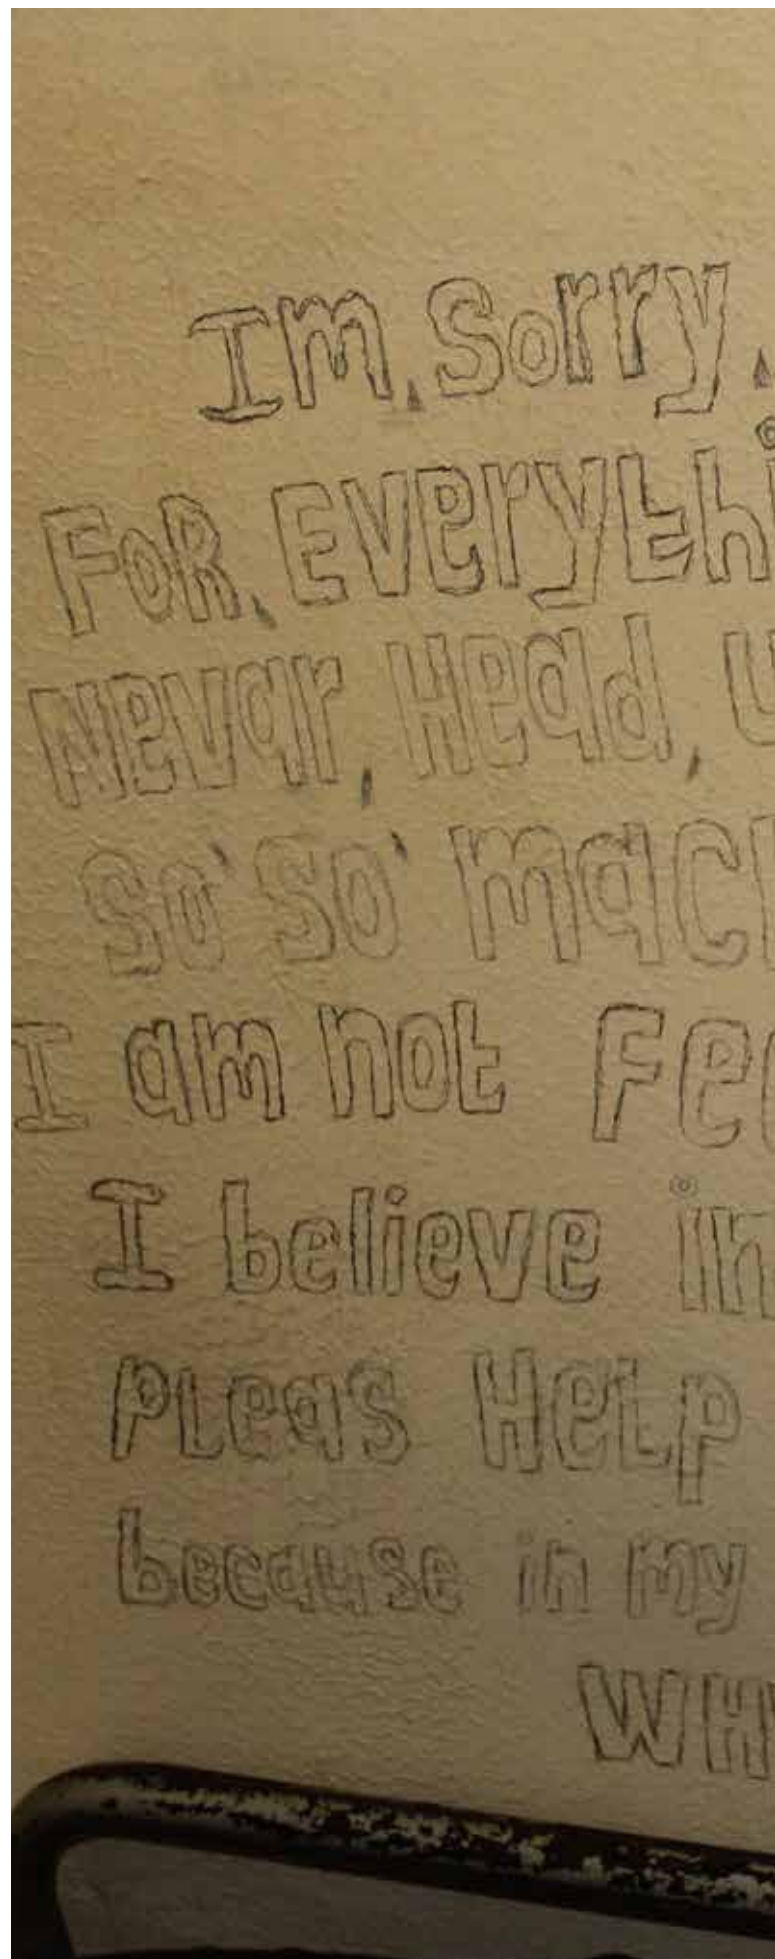 Im, Sorry,
FoR, Everythi
Nevar, Head, U
So' So' macl
I am not Fee
I believe in
PLeas HeLp
because in my
WHY